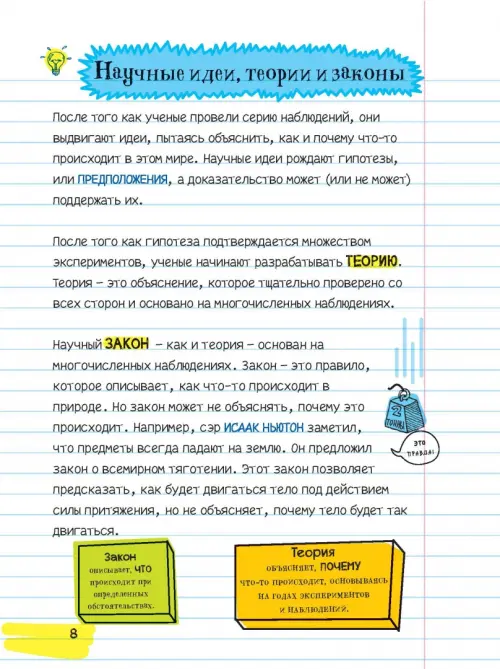 Научные идеи, теории и законы
После того как ученые провели серию наблюдений, они
выдвигают идеи, пытаясь объяснить, как и почему что-то
происходит в этом мире. Научные идеи рождают гипотезы,
или ПРЕДПОЛОЖЕНИЯ, а доказательство может (или не может)
поддержать их.
После того как гипотеза подтверждается множеством
экспериментов, ученые начинают разрабатывать ТЕОРИЮ.
Теория – это объяснение, которое тщательно проверено со
всех сторон и основано на многочисленных наблюдениях.
Научный ЗАКОН – как и теория – основан на
многочисленных наблюдениях. Закон – это правило,
которое описывает, как что-то происходит в
природе. Но закон может не объяснять, почему это
происходит. Например, сэр ИСААК НЬЮТОН заметил,
что предметы всегда падают на землю. Он предложил
закон о всемирном тяготении. Этот закон позволяет
предсказать, как будет двигаться тело под действием
силы притяжения, но не объясняет, почему тело будет так
двигаться.
2
ТОННЫ
ЭТО
ПРАВДА!
Закон
описывает, ЧТО
происходит при
определенных
обстоятельствах.
Теория
объясняет, ПОЧЕМУ
что-то происходит, основываясь
на годах экспериментов
и наблюдений.
8